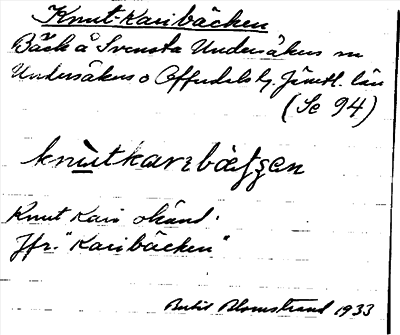 Knut-Karibäcken
Bäck å Svensta Undersåkers sn
Undersåkers o Offerdals tg. Jämtl. län
(Se 94)
knùtkaribäʃʃen
Knut Kari okänd.
Jfr. "Karibäcken"
Bertil Blomstrand 1933